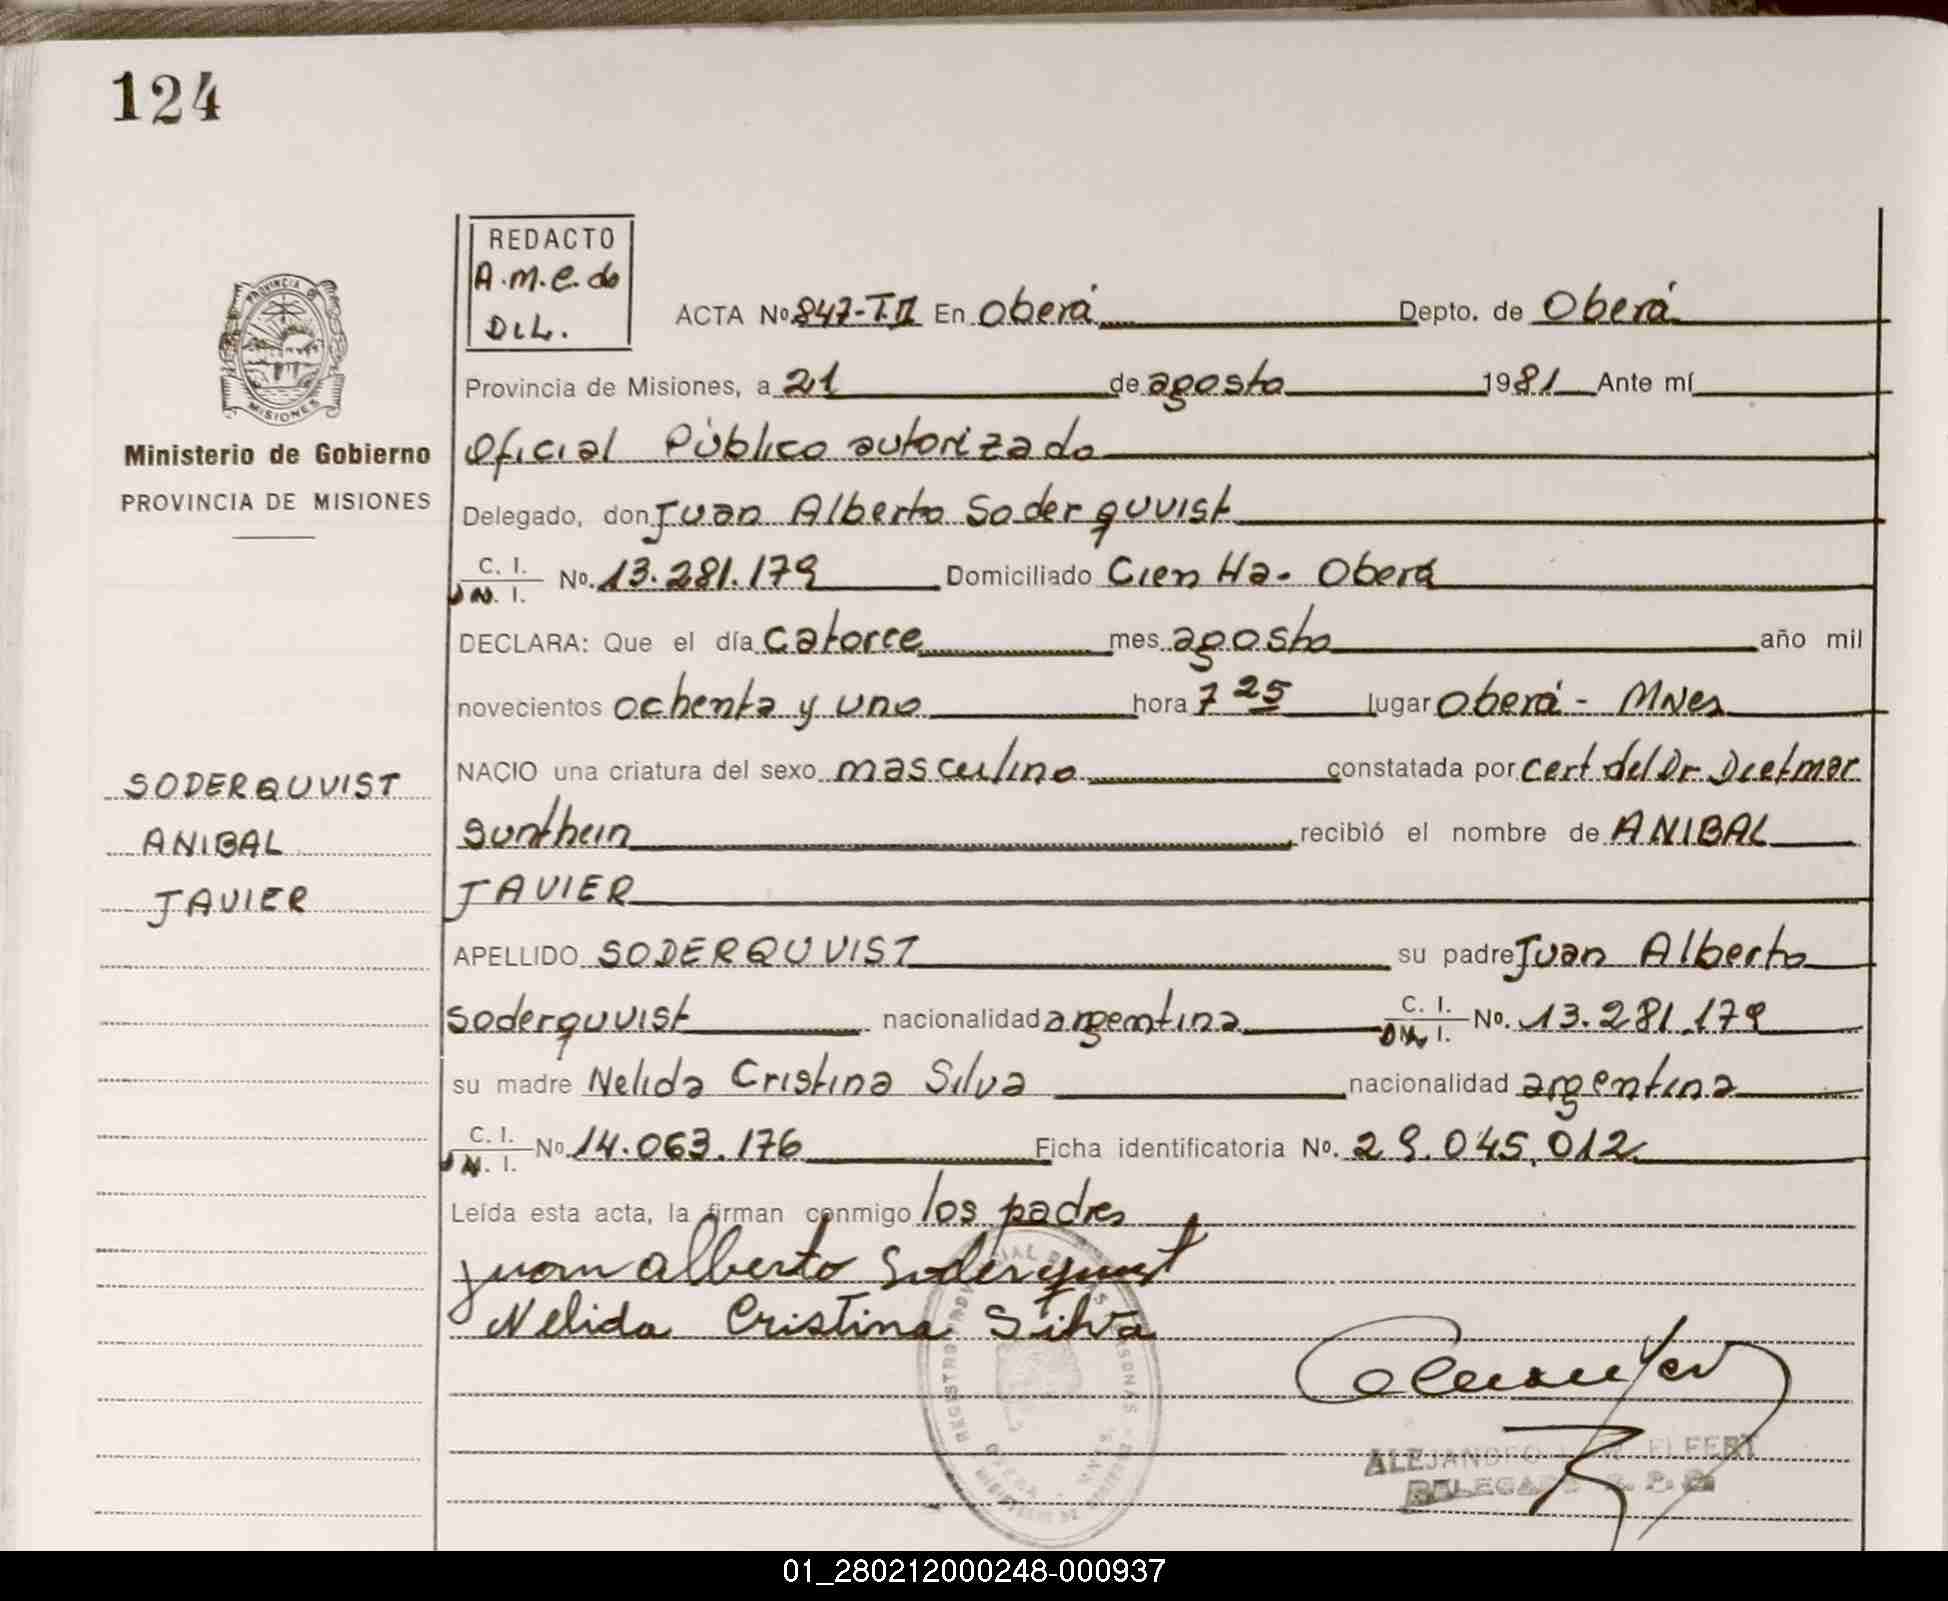 124
REDACTO
A.M.E. de
D.L.
PROVINCIA DE
MISIONES
ACTA Nº 847-T.II En Oberá Depto. de Oberá
Provincia de Misiones, a 21 de agosto 1981 Ante mí
Ministerio de Gobierno
Oficial Público autorizado
PROVINCIA DE MISIONES
Delegado, don Juan Alberto Soderquvist
C. I. N. I. Nº. 13.281.179 Domiciliado Cien Ha. Oberá
DECLARA: Que el día catorce mes agosto año mil
novecientos ochenta y uno hora 7 25 lugar Oberá - Mnes
NACIO una criatura del sexo masculino constatada por Cert del Dr Dietmar
SODERQUVIST
ANIBAL
JAVIER
Sunthein recibió el nombre de ANIBAL
JAVIER
APELLIDO SODERQUVIST su padre Juan Alberto
Soderquvist nacionalidad argentina C. I. DN. I. Nº. 13.281.179
su madre Nelida Cristina Silva nacionalidad argentina
C. I. N. I. Nº 14.063.176 Ficha identificatoria Nº. 29.045.012
Leída esta acta, la firman conmigo los padres
Juan Alberto Soderquvist
Nelida Cristina Silva
ALEJANDRO
DELEGADO
01_280212000248-000937